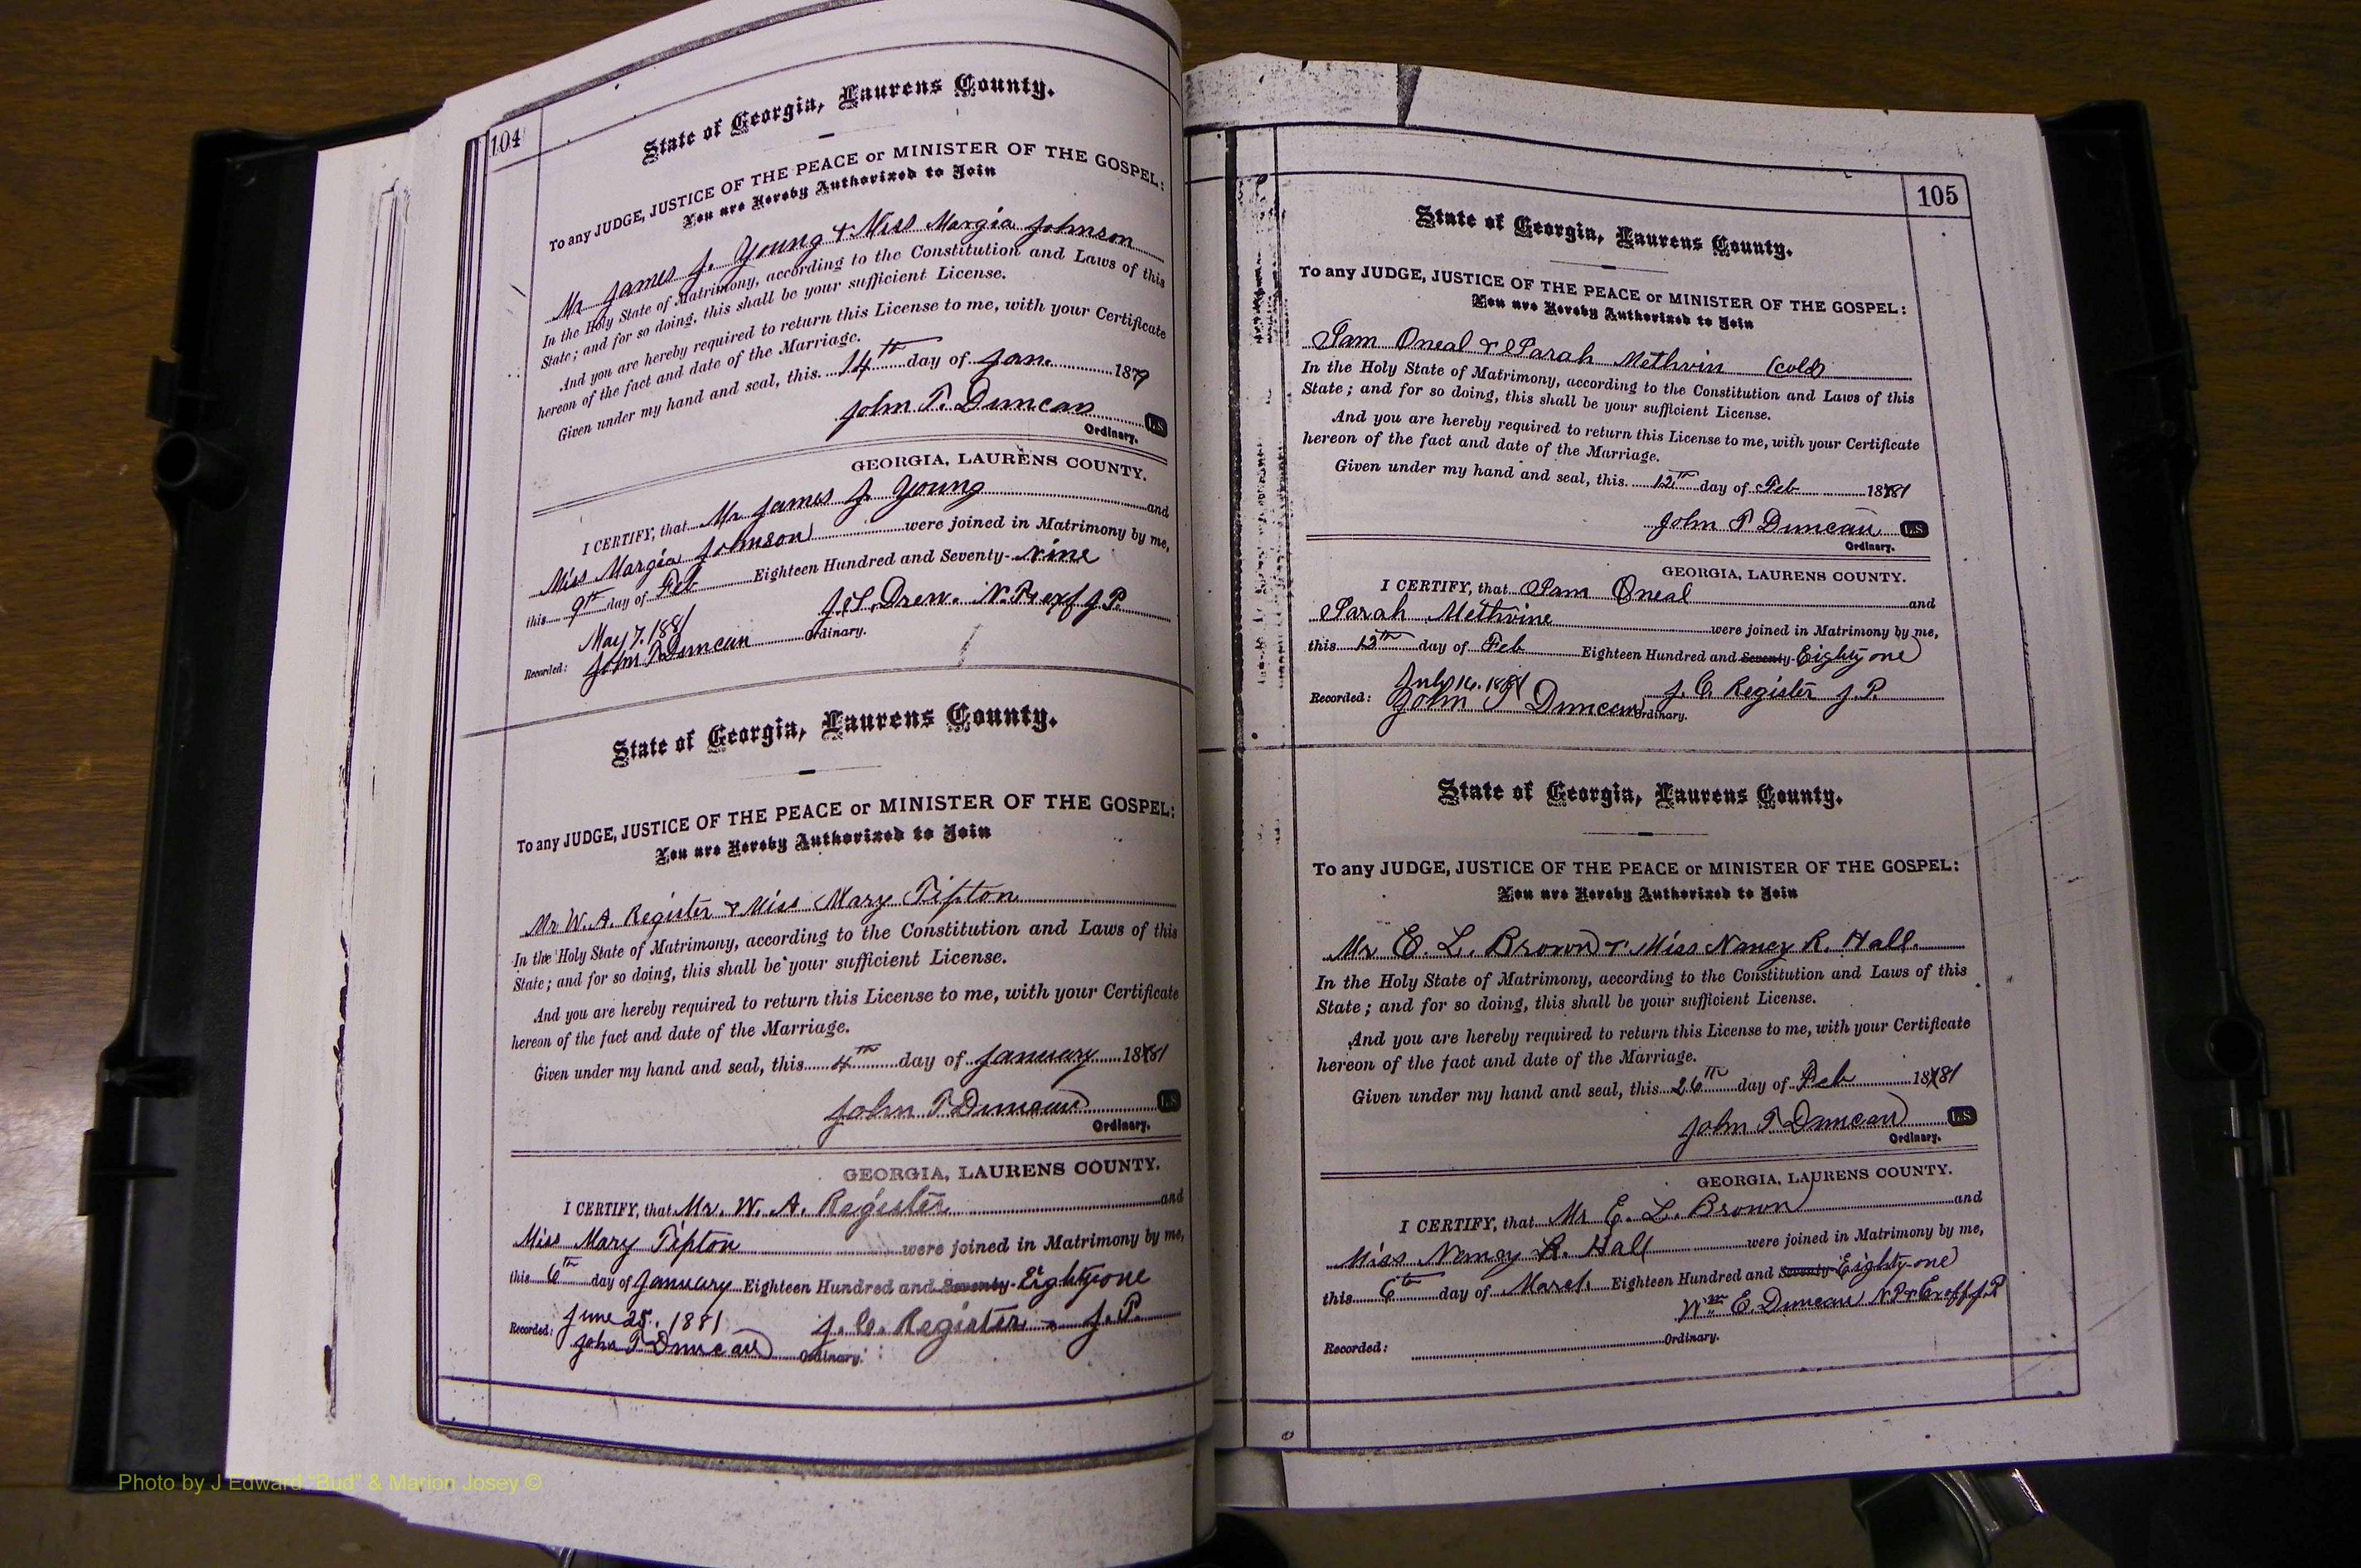 104
State of Georgia, Laurens County.
To any JUDGE, JUSTICE OF THE PEACE or MINISTER OF THE GOSPEL:
You are Hereby Authorized to Join
Mr James J. Young & Miss Margia Johnson
In the Holy State of Matrimony, according to the Constitution and Laws of this
State; and for so doing, this shall be your sufficient License.
And you are hereby required to return this License to me, with your Certificate
hereon of the fact and date of the Marriage.
Given under my hand and seal, this 14th day of Jan. 1879
John T. Duncan L.S
Ordinary.
GEORGIA, LAURENS COUNTY.
I CERTIFY, that Mr James J. Young and
Miss Margia Johnson were joined in Matrimony by me,
this 9th day of Feb Eighteen Hundred and Seventy-Nine
J. T. Drew. N.P. & exf J.P.
May 7. 1881
Recorded: John T Duncan Ordinary.
State of Georgia, Laurens County.
To any JUDGE, JUSTICE OF THE PEACE or MINISTER OF THE GOSPEL:
You are Hereby Authorized to Join
Mr W. A. Register & Miss Mary Tipton
In the Holy State of Matrimony, according to the Constitution and Laws of this
State; and for so doing, this shall be your sufficient License.
And you are hereby required to return this License to me, with your Certificate
hereon of the fact and date of the Marriage.
Given under my hand and seal, this 4th day of January 1881
John T Duncan L.S
Ordinary.
GEORGIA, LAURENS COUNTY.
I CERTIFY, that Mr. W. A. Register and
Miss Mary Tipton were joined in Matrimony by me,
this 6th day of January Eighteen Hundred and Seventy-Eighty one
June 25. 1881 J. C. Register J.P.
Recorded: John T Duncan Ordinary.
105
State of Georgia, Laurens County.
To any JUDGE, JUSTICE OF THE PEACE or MINISTER OF THE GOSPEL:
You are Hereby Authorized to Join
Sam Oneal & Sarah Methvin (cold)
In the Holy State of Matrimony, according to the Constitution and Laws of this
State; and for so doing, this shall be your sufficient License.
And you are hereby required to return this License to me, with your Certificate
hereon of the fact and date of the Marriage.
Given under my hand and seal, this 12th day of Feb 1881
John T Duncan L.S
Ordinary.
GEORGIA, LAURENS COUNTY.
I CERTIFY, that Sam Oneal and
Sarah Methvine were joined in Matrimony by me,
this 12th day of Feb Eighteen Hundred and Seventy-Eighty one
July 16. 1881 J. C. Register J.P.
Recorded: John T Duncan Ordinary.
State of Georgia, Laurens County.
To any JUDGE, JUSTICE OF THE PEACE or MINISTER OF THE GOSPEL:
You are Hereby Authorized to Join
Mr E. L. Brown & Miss Nancy R. Hall.
In the Holy State of Matrimony, according to the Constitution and Laws of this
State; and for so doing, this shall be your sufficient License.
And you are hereby required to return this License to me, with your Certificate
hereon of the fact and date of the Marriage.
Given under my hand and seal, this 26th day of Feb 1881
John T Duncan L.S
Ordinary.
GEORGIA, LAURENS COUNTY.
I CERTIFY, that Mr E. L. Brown and
Miss Nancy R. Hall were joined in Matrimony by me,
this 6th day of March Eighteen Hundred and Seventy-Eighty-one
Wm E. Duncan N.P. & Exoff J.P
Recorded: Ordinary.
Photo by J Edward "Bud" & Marion Josey ©